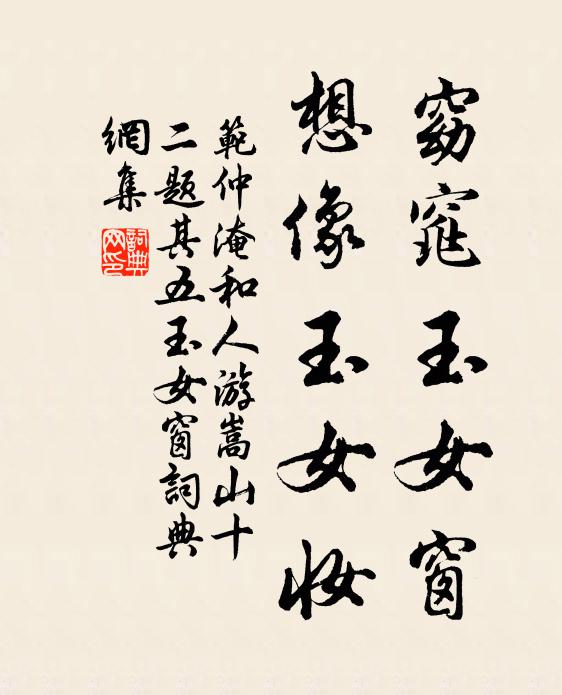 窈窕玉女窗
想像玉女妝
範仲淹和人游嵩山十
二题其五玉女窗詞典
網集
詞典網印